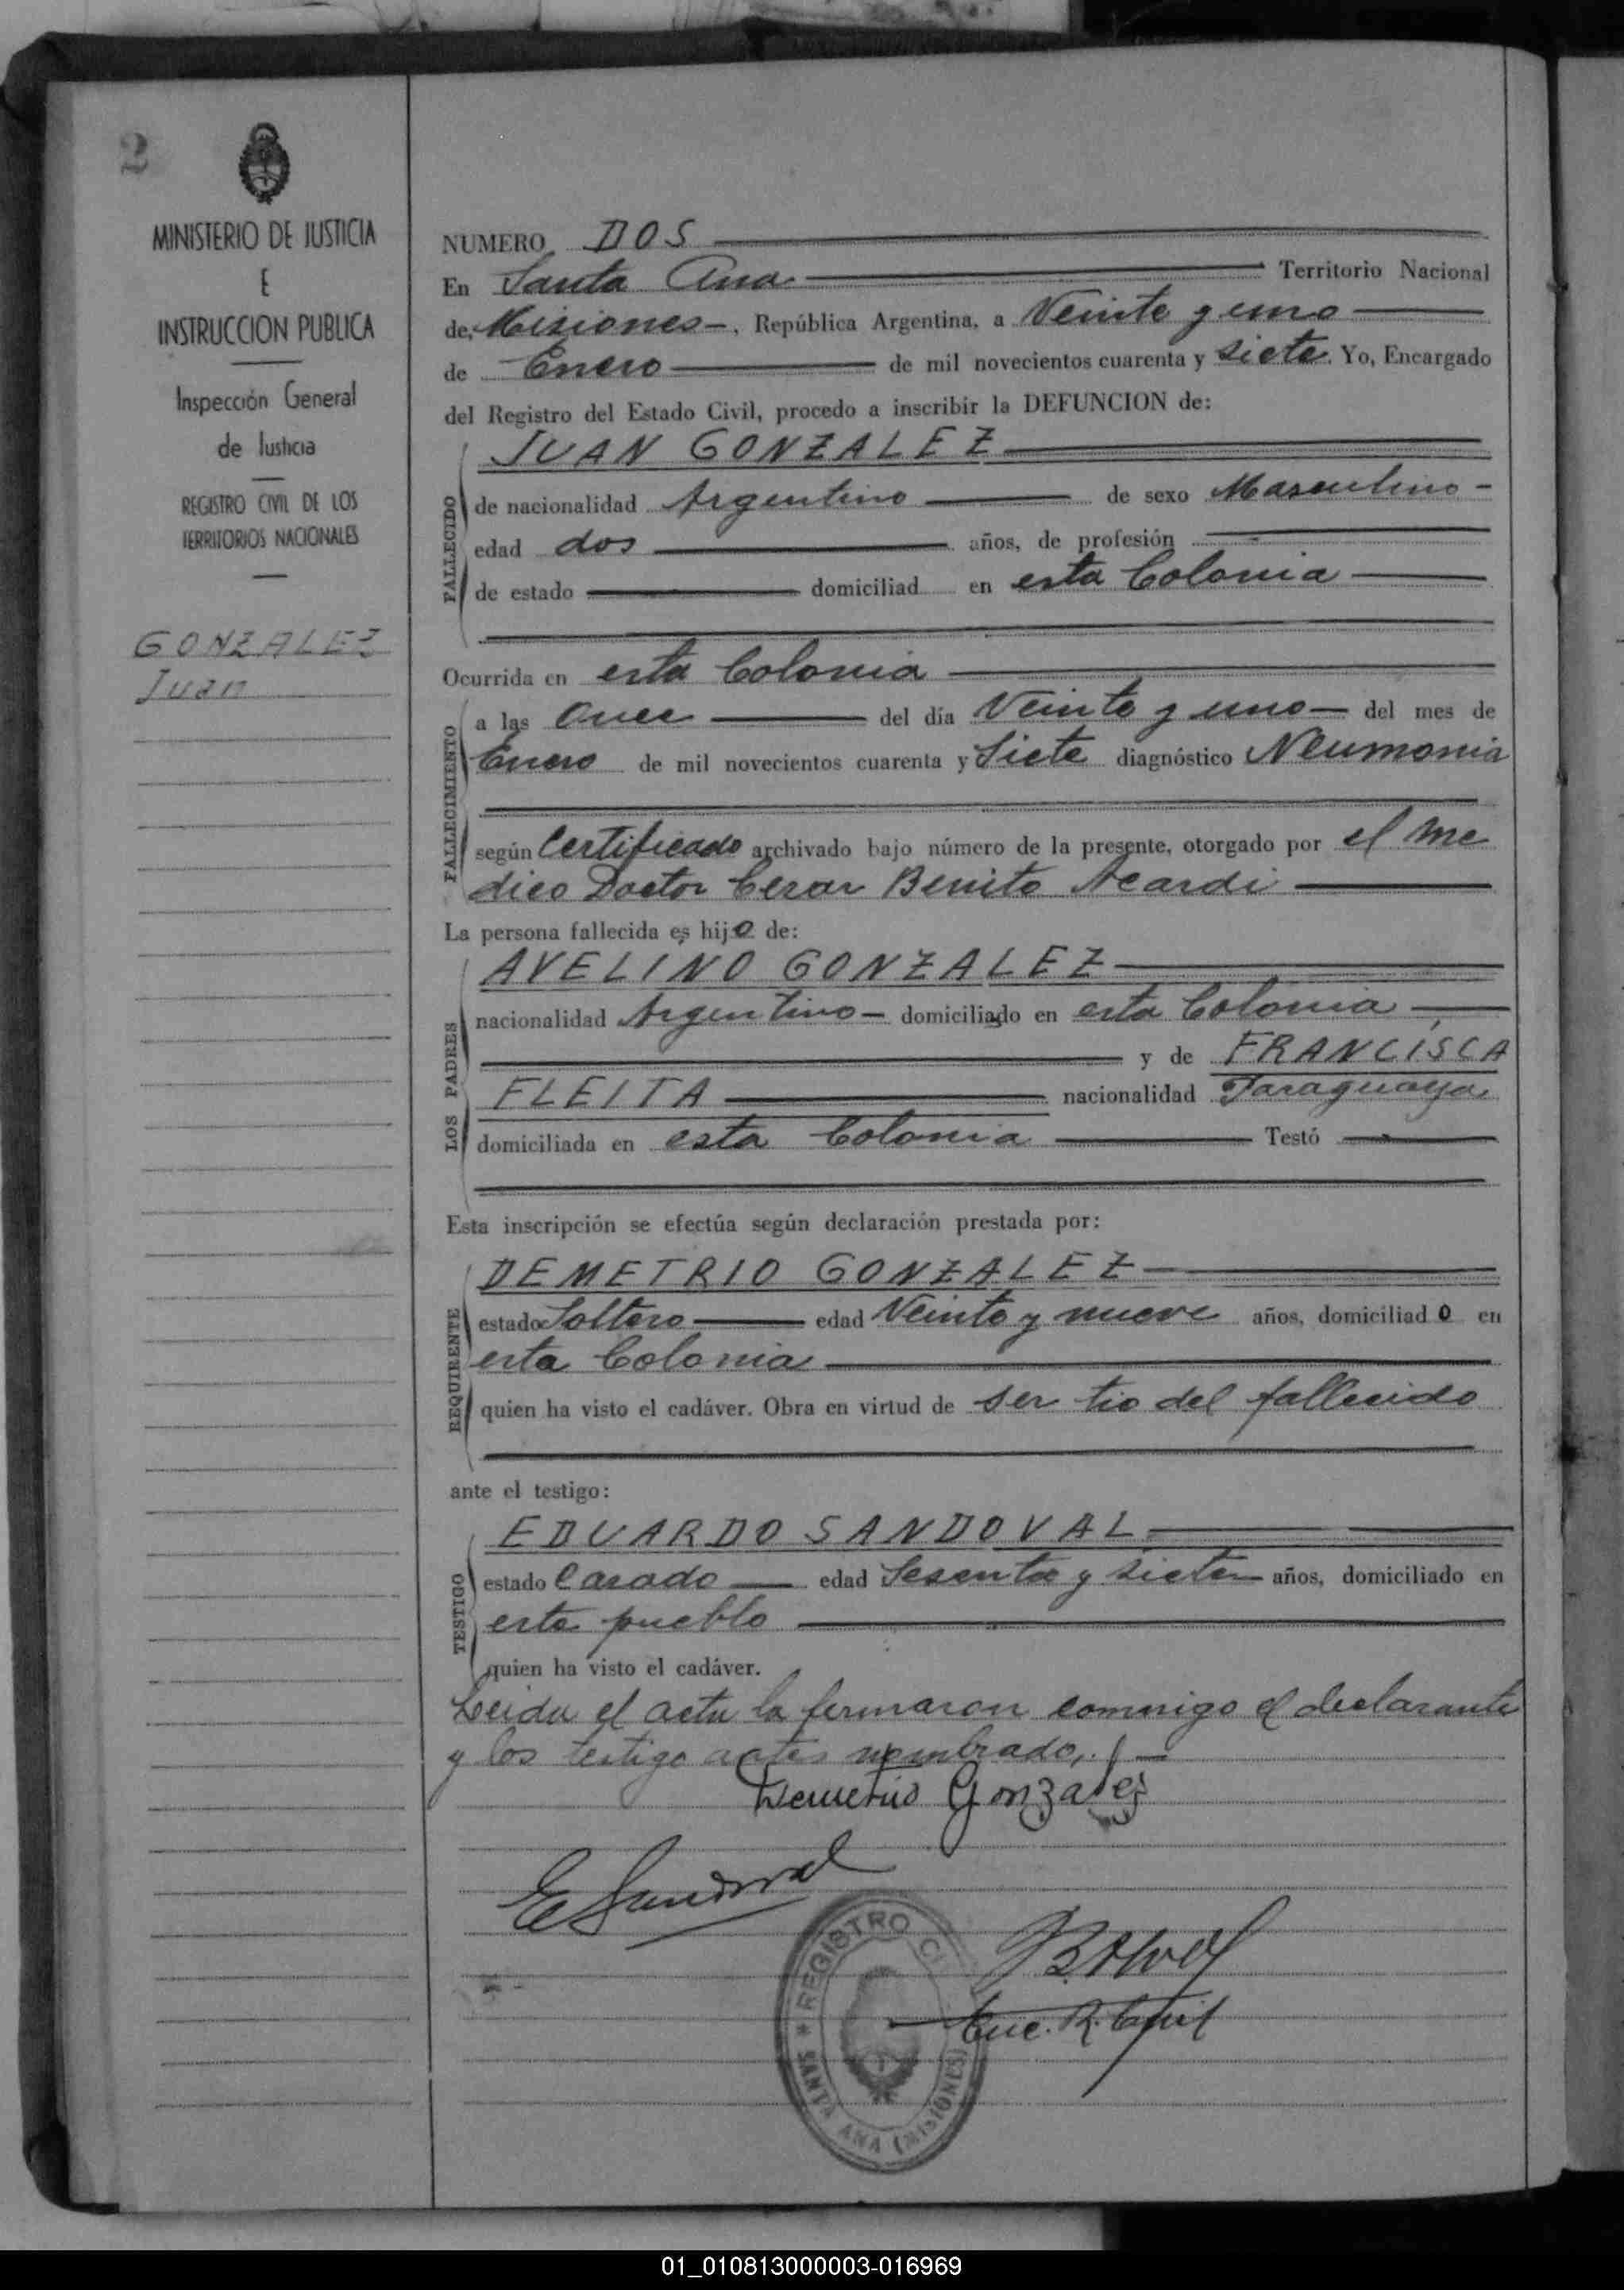 2
MINISTERIO DE JUSTICIA
E
INSTRUCCION PUBLICA
Inspección General
de Justicia
REGISTRO CIVIL DE LOS
TERRITORIOS NACIONALES
GONZALEZ
Juan
NUMERO DOS
En Santa Ana Territorio Nacional
de Misiones, República Argentina, a Veinte y uno
de Enero de mil novecientos cuarenta y siete. Yo, Encargado
del Registro del Estado Civil, procedo a inscribir la DEFUNCION de:
JUAN GONZALEZ
FALLECIDO
de nacionalidad Argentino de sexo Masculino
edad dos años, de profesión
de estado domiciliad en esta Colonia
Ocurrida en esta Colonia
FALLECIMIENTO
a las Once del día Veinte y uno del mes de
Enero de mil novecientos cuarenta y Siete diagnóstico Neumonia
según Certificado archivado bajo número de la presente, otorgado por el Me
dico Doctor Cesar Benito Acardi
La persona fallecida es hijo de:
LOS PADRES
AVELINO GONZALEZ
nacionalidad Argentino domiciliado en esta Colonia
y de FRANCISCA
FLEITA nacionalidad Paraguaya
domiciliada en esta Colonia Testó
Esta inscripción se efectúa según declaración prestada por:
REQUIRENTE
DEMETRIO GONZALEZ
estado Soltero edad Veinte y nueve años, domiciliado en
esta Colonia
quien ha visto el cadáver. Obra en virtud de ser tio del fallecido
ante el testigo:
TESTIGO
EDUARDO SANDOVAL
estado Casado edad Sesenta y siete años, domiciliado en
este pueblo
quien ha visto el cadáver.
Leida el acta la firmaron conmigo el declarante
y los testigo antes nombrado,.
Demetrio Gonzalez
E Sandoval
Enc. R. Civil
REGISTRO CI
SANTA ANA (MISIONES)
01_010813000003-016969